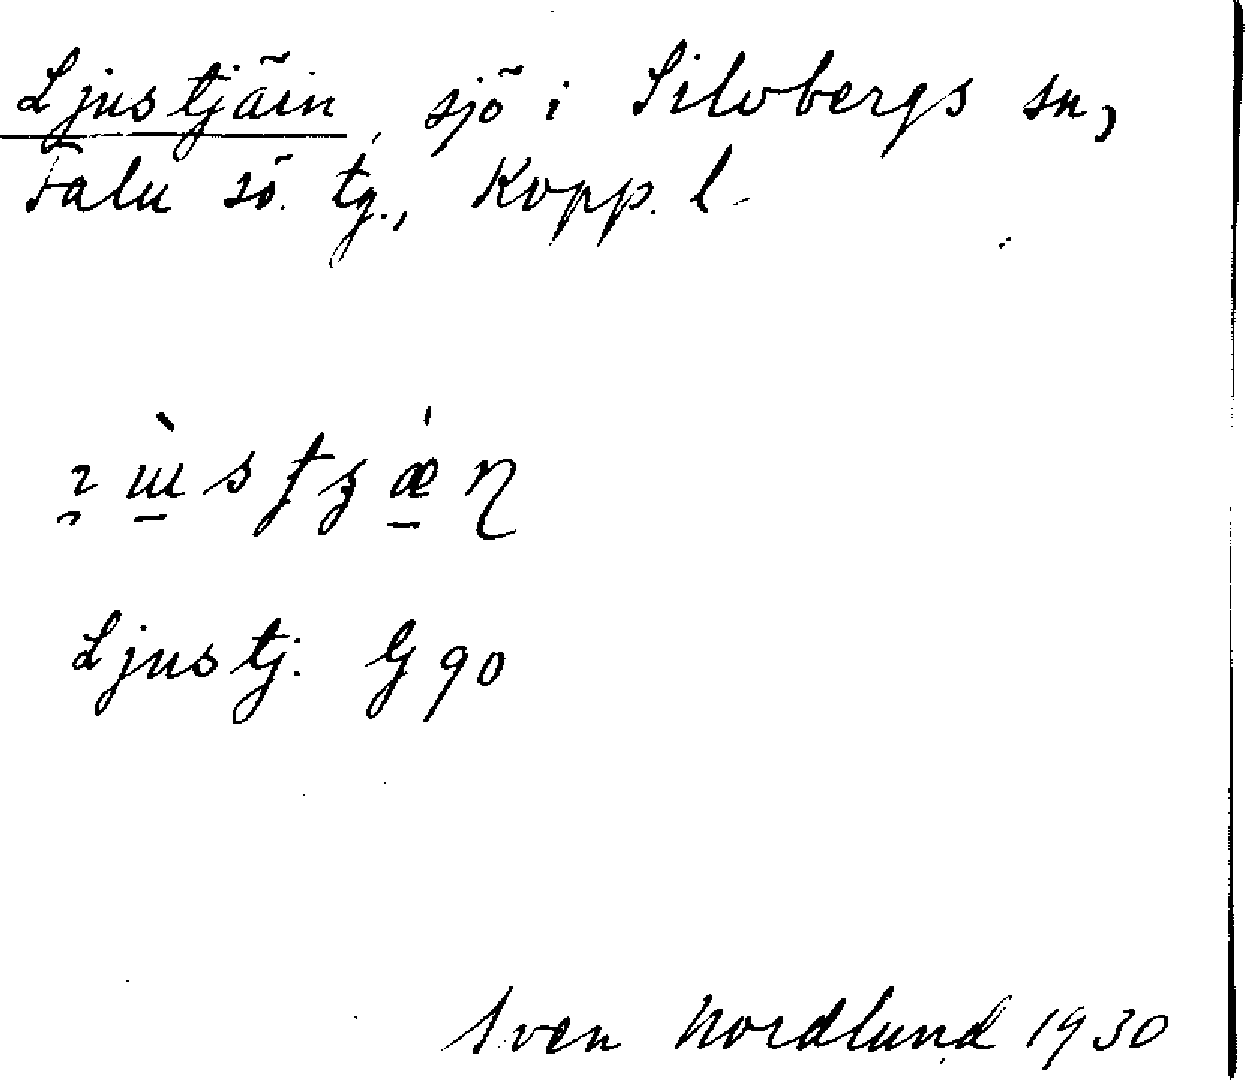 Ljustjärn, sjö i Silvbergs sn,
Falu sö. tg., Kopp. l.
Ljustj. G 90
Sven Nordlund 1930